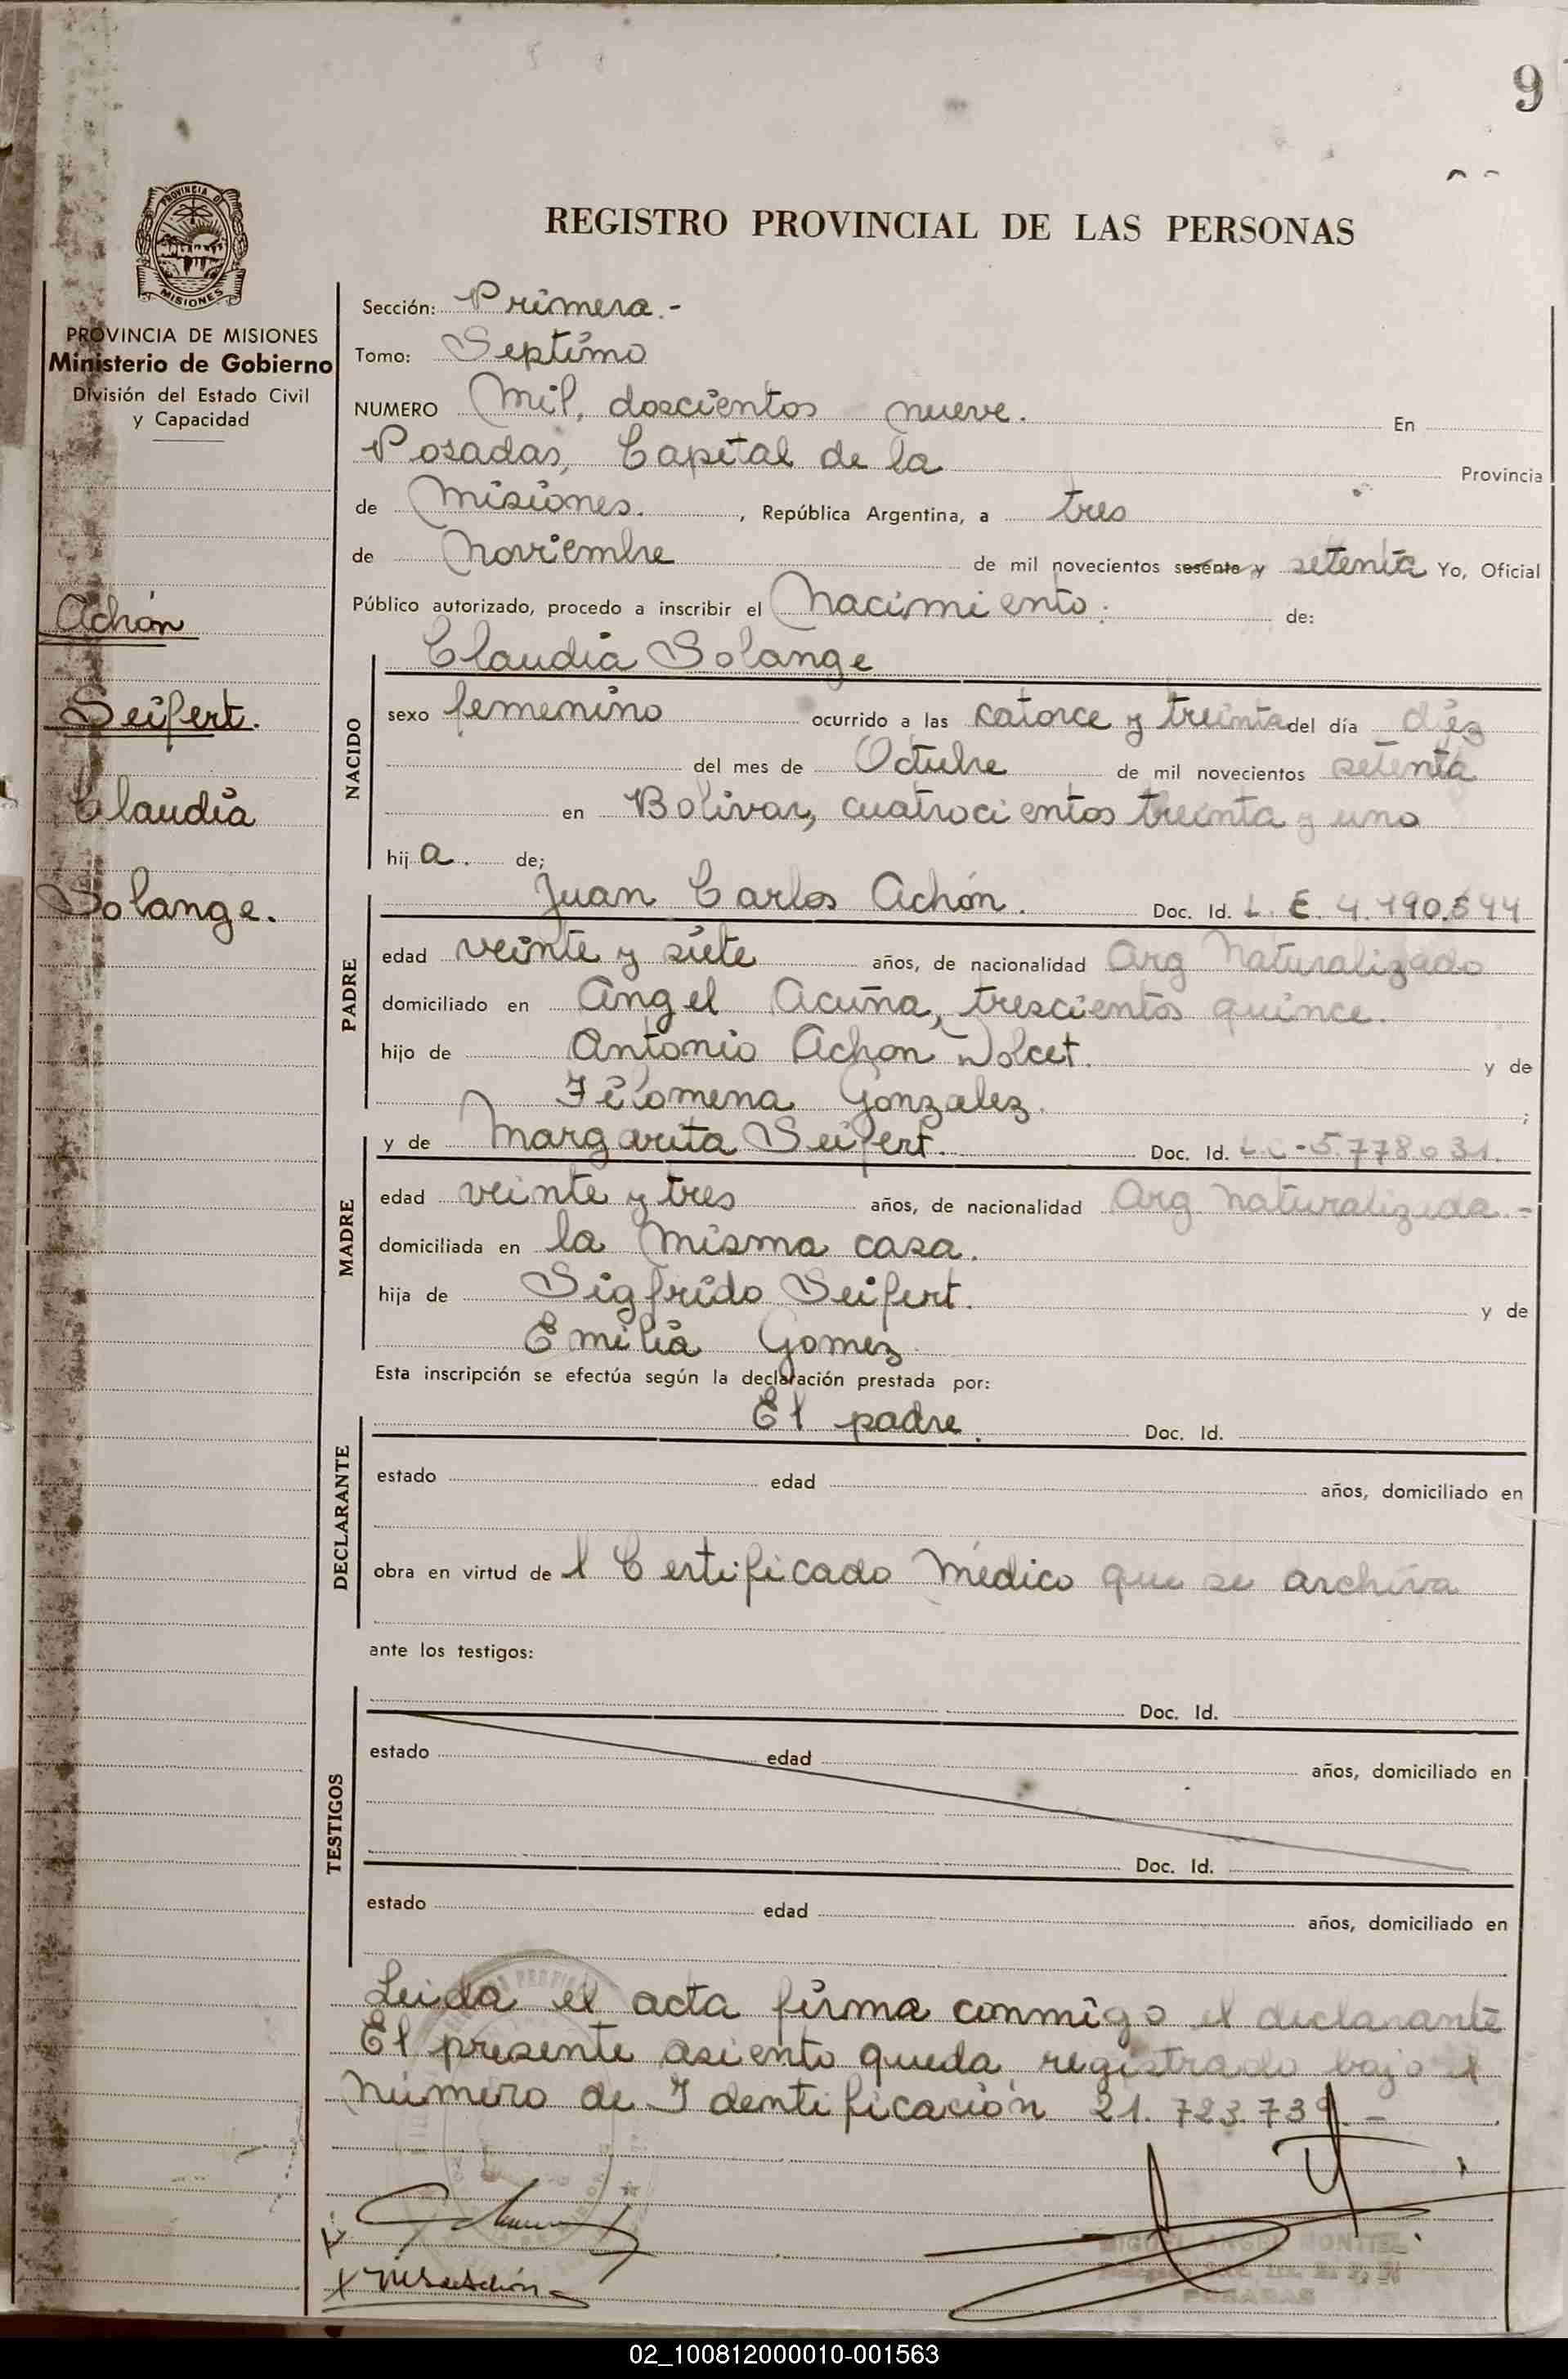 9
REGISTRO PROVINCIAL DE LAS PERSONAS
PROVINCIA DE MISIONES
PROVINCIA DE MISIONES
Ministerio de Gobierno
División del Estado Civil
y Capacidad
Achón
Seifert.
Claudia
Solange.
Sección: Primera.-
Tomo: Septimo
NUMERO Mil, doscientos nueve. En
Posadas, Capital de la Provincia
de Misiones. , República Argentina, a tres
de Noviembre de mil novecientos sesenta y setenta Yo, Oficial
Público autorizado, procedo a inscribir el Nacimiento. de:
NACIDO
Claudia Solange
sexo femenino ocurrido a las catorce y treinta del día diez
del mes de Octubre de mil novecientos setenta
en Bolivar, cuatrocientos treinta y uno
hij a. de;
PADRE
Juan Carlos Achón. Doc. Id. L. E. 4.190.544
edad veinte y siete años, de nacionalidad Arg Naturalizado
domiciliado en Angel Acuña, trescientos quince.
hijo de Antonio Achon Dolcet. y de
Filomena Gonzalez. ;
MADRE
y de Margarita Seifert. Doc. Id. L.C-5.778.031.
edad veinte y tres años, de nacionalidad Arg naturalizada.-
domiciliada en la misma casa.
hija de Sigfrido Seifert. y de
Emilia Gomez.
Esta inscripción se efectúa según la declaración prestada por:
DECLARANTE
El padre. Doc. Id.
estado edad años, domiciliado en
obra en virtud de l Certificado Médico que se archiva
ante los testigos:
TESTIGOS
Doc. Id.
estado edad años, domiciliado en
Doc. Id.
estado edad años, domiciliado en
Leida el acta firma conmigo el declarante
El presente asiento queda registrado bajo el
Número de Identificación 21.723.739.-
MIGUEL ANGEL
POSADAS
02_100812000010-001563